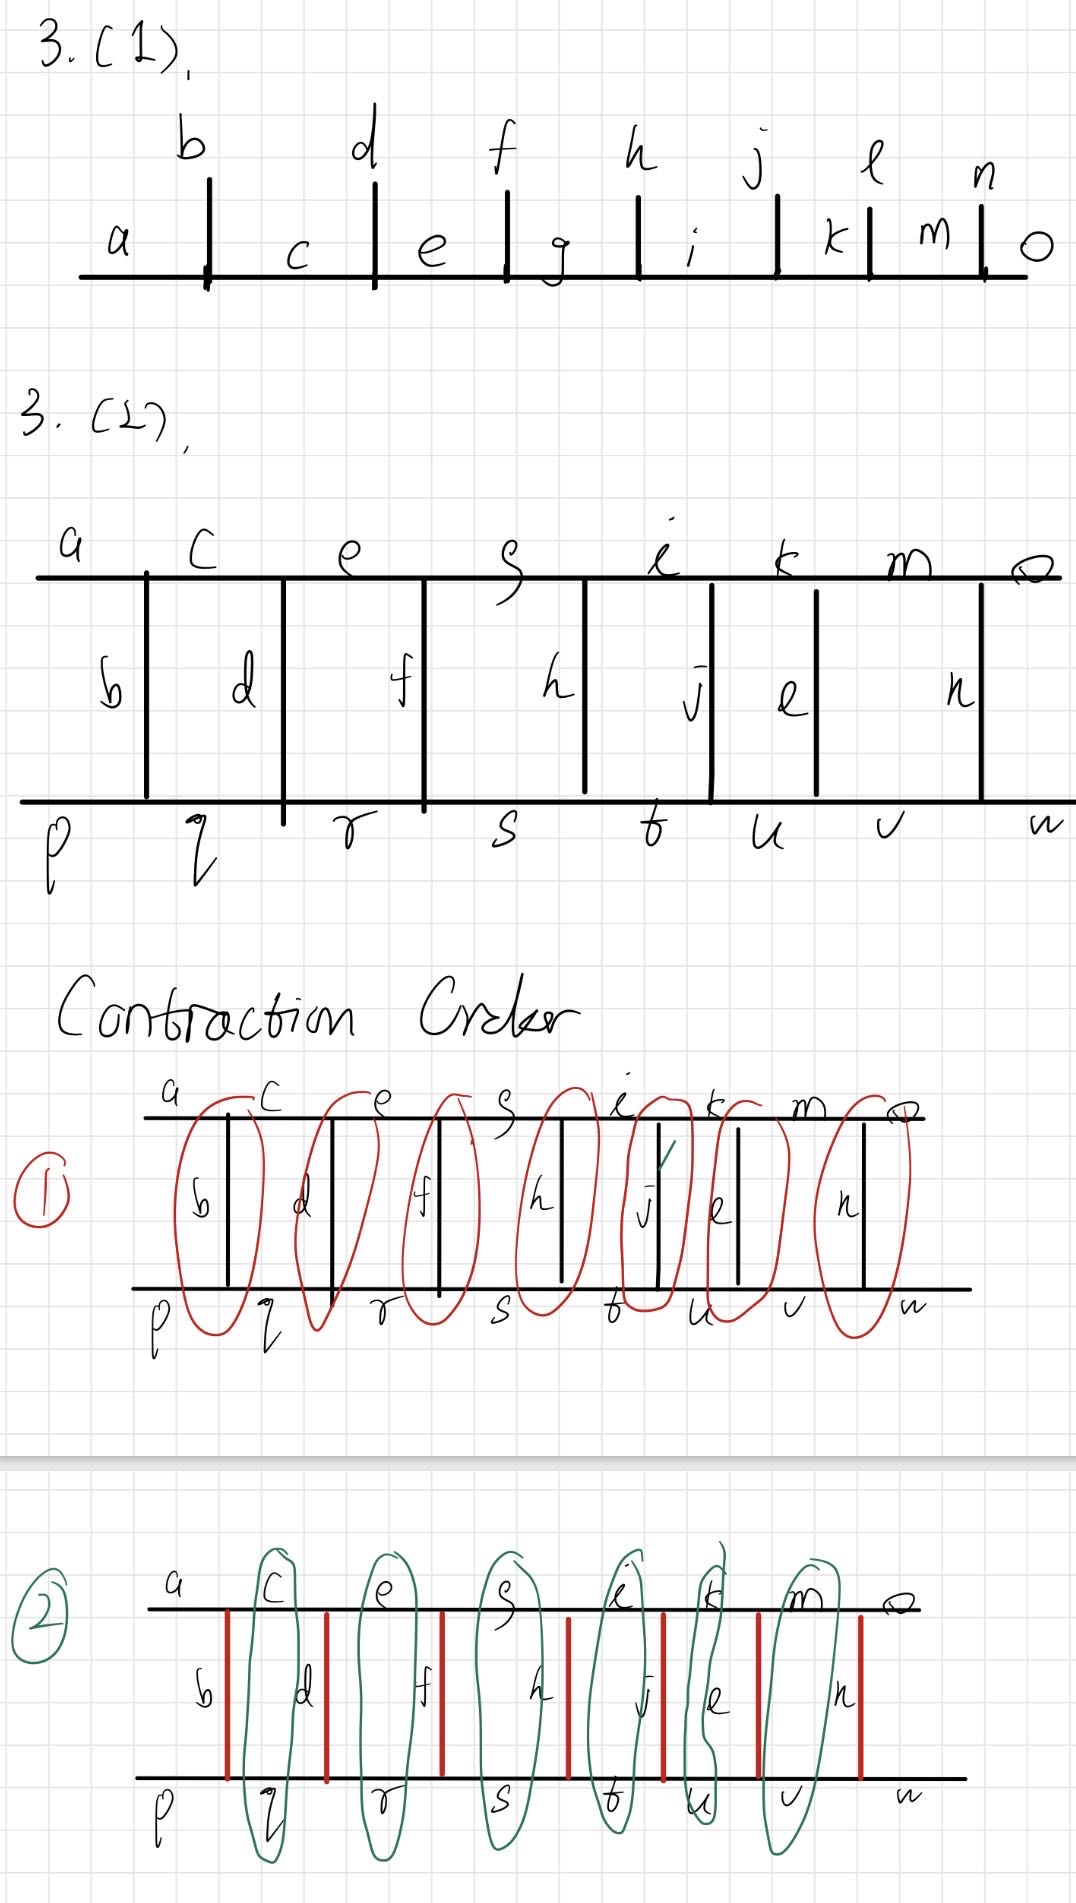 3. (1).
b d f h j l n
a c e g i k m o
3. (2).
a c e g i k m o
b d f h j l n
p q r s t u v w
Contraction Order
a c e g i k m o
① b d f h j l n
p q r s t u v w
a c e g i k m o
② b d f h j l n
p q r s t u v w